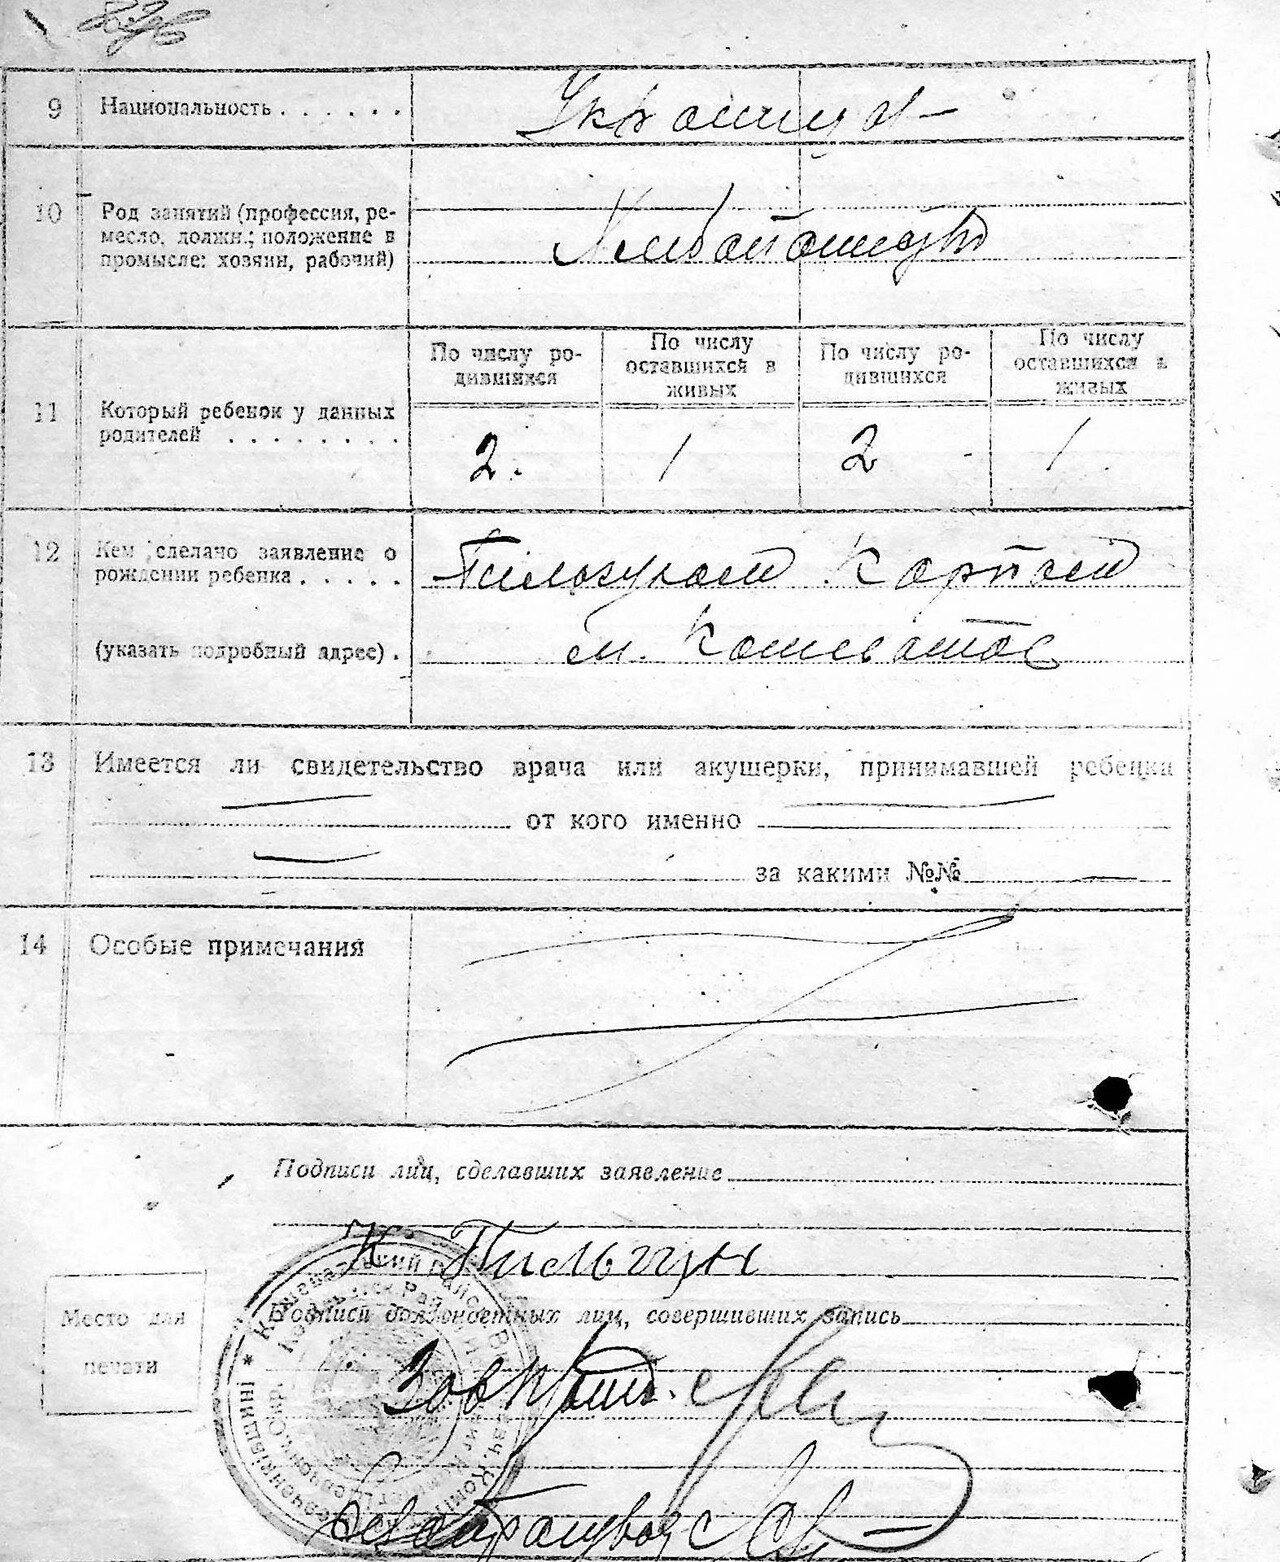 9 Национальность . . . . . . Українці
10 Род занятий (профессия, ре-
месло, должн.; положение в
промысле: хозяин, рабочий)
Хлибопашцтво
11 Который ребенок у данных
родителей . . . . . . . .
По числу ро-
дившихся
По числу
оставшихся в
живых
По числу ро-
дившихся
По числу
оставшихся в
живых
2. 1 2 1
12 Кем сделано заявление о
рождении ребенка . . . . .
Карпом
(указать подробный адрес) . м. Кошеватое
13 Имеется ли свидетельство врача или акушерки, принимавшей ребенка
от кого именно
за какими №№
14 Особые примечания
Подписи лиц, сделавших заявление
К. Пильгун
Место для
печати
Подписи должностных лиц, совершивших запись